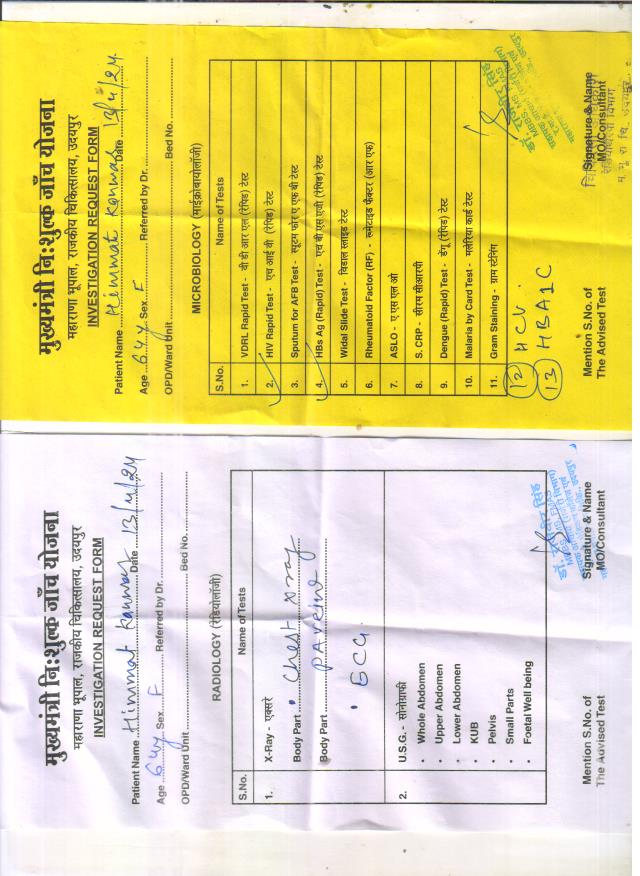 मुख्यमंत्री नि:शुल्क जाँच योजना
महाराणा भूपाल, राजकीय चिकित्सालय, उदयपुर
INVESTIGATION REQUEST FORM
Patient Name Himmat Kanwar Date 13/4/24
Age 64y Sex F Referred by Dr.
OPD/Ward Unit Bed No.
MICROBIOLOGY (माईक्रोबायोलॉजी)
S.No. Name of Tests
1. VDRL Rapid Test - वी डी आर एल (रैपिड) टेस्ट
2. HIV Rapid Test - एच आई वी (रैपिड) टेस्ट
3. Sputum for AFB Test - स्पूटम फोर ए एफ बी टेस्ट
4. HBs Ag (Rapid) Test - एच बी एस एजी (रैपिड) टेस्ट
5. Widal Slide Test - विडाल स्लाइड टेस्ट
6. Rheumatoid Factor (RF) - रूमेटाइड फैक्टर (आर एफ)
7. ASLO - ए एस एल ओ
8. S. CRP - सीरम सीआरपी
9. Dengue (Rapid) Test - डेंगू (रैपिड) टेस्ट
10. Malaria by Card Test - मलेरिया कार्ड टेस्ट
11. Gram Staining - ग्राम स्टेनिंग
12 HCV
13 HBA1C
Mention S.No. of
The Advised Test
Signature & Name
MO/Consultant
मुख्यमंत्री नि:शुल्क जाँच योजना
महाराणा भूपाल, राजकीय चिकित्सालय, उदयपुर
INVESTIGATION REQUEST FORM
Patient Name Himmat Kanwar Date 13/4/24
Age 64y Sex F Referred by Dr.
OPD/Ward Unit Bed No.
RADIOLOGY (रेडियोलॉजी)
S.No. Name of Tests
1. X-Ray - एक्सरे
Body Part • Chest xray
Body Part PA view
• ECG
2. U.S.G. - सोनोग्राफी
• Whole Abdomen
• Upper Abdomen
• Lower Abdomen
• KUB
• Pelvis
• Small Parts
• Foetal Well being
Mention S.No. of
The Advised Test
Signature & Name
MO/Consultant